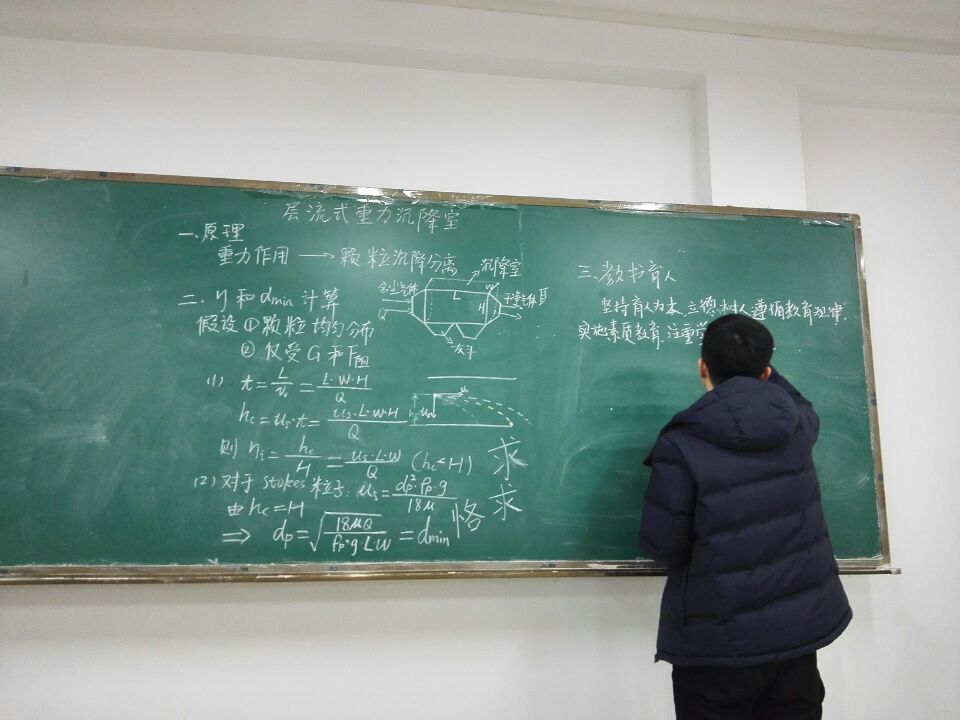 层流式重力沉降室
一、原理
重力作用 → 颗粒沉降分离
沉降室
含尘气体
Q
L
W
H
干净气体
灰斗
二、η和dmin计算
假设 ① 颗粒均匀分布
② 仅受G和F阻
(1) t = L/u₀ = L·W·H/Q
hc = us·t = us·L·W·H/Q
则 ηi = hc/H = us·L·W/Q (hc≤H)
(2) 对于stokes粒子: us = dp²·ρp·g/18μ
由hc=H
⇒ dp = √(18μQ/ρp·g LW) = dmin
求
恪求
三、教书育人
坚持育人为本、立德树人、遵循教育规律、
实施素质教育、注重学